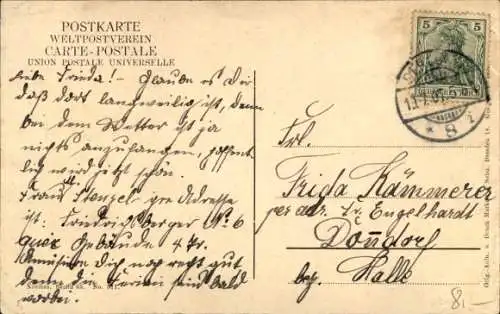 POSTKARTE
WELTPOSTVEREIN
CARTE-POSTALE
UNION POSTALE UNIVERSELLE
Liebe Frieda! - Glaube es Dir
daß dort langweilig ist, denn
bei dem Wetter ist ja
nichts anzufangen, hoffent-
lich wird jetzt schön.
Frau Stenzel Adresse
ist: Friedrichsberger No. 6
Gebäude 4 Tr.
Amüsiere Dich noch recht gut
denn die Ferien sind bald
vorbei.
5 5
8
Frl.
Frida Kämmerer
per adr. Fr. Engelhardt
Dondorf
bez. Halle
8.-